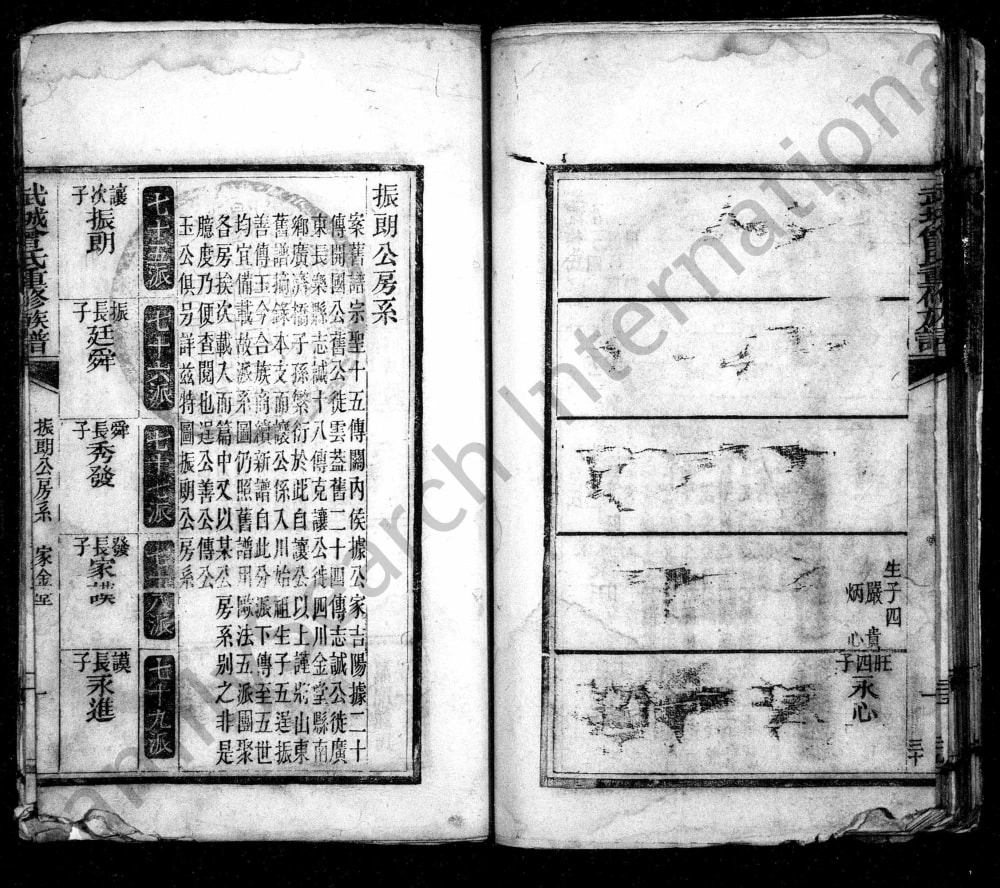 生子四
嚴 貴
炳 心
旺四子永心
三十
振朗公房系
案舊譜宗聖十五傳關內侯據公家吉陽據二十
傳開國公舊公徙雲蓋舊二十四傳志誠公徙廣
東長樂縣志誠十八傳克讓公徙四川金堂縣南
鄉廣濟橋子孫繁衍於此自讓公以上謹將山東
舊譜摘錄本支而讓公係入川始祖生子五逞振
善傳玉今合族商續新譜自此分派下傳至五世
均宜備載故派系圖仍照舊譜用歐法五派團聚
各房挨次載入而篇中又以某公房系別之非是
臆度乃便查閱也逞公善公傳公
玉公俱另詳茲特圖振朗公房系
七十五派
七十六派
七十七派
七十八派
七十九派
讓次子振朗
振長子廷舜
舜長子秀發
發長子家謨
謨長子永進
武城曾氏重修族譜
振朗公房系
家金
一
Family Search International